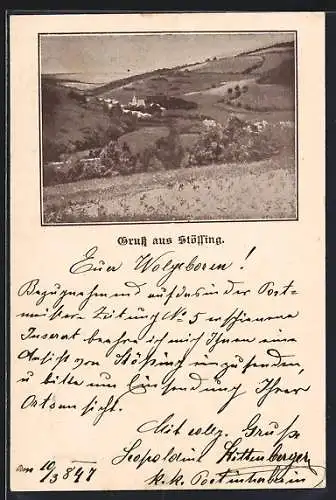 Gruß aus Stössing.
Euer Wolgeboren!
Bezugnehmend auf das in der Post-
meister Zeitung No 5 erschienene
Inserat beehre ich mich Ihnen eine
Ansicht von Stössing einzusenden,
u bitte um Einsendung Ihrer
Ortsansicht.
Mit collg. Gruße
Leopoldine Hittenberger
k. k. Postinhaberin
10/3 1897